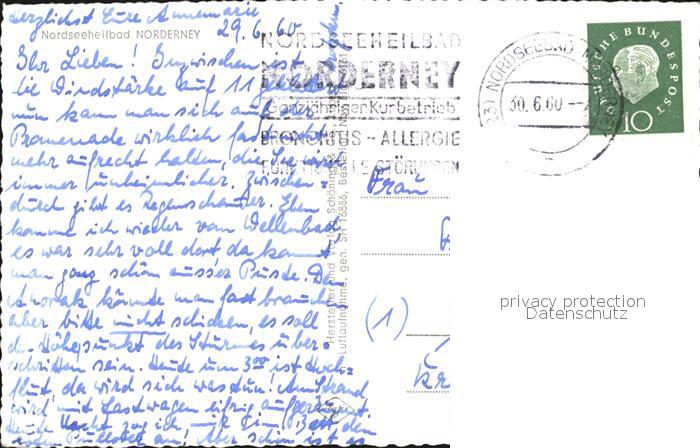 herzlichst Eure Annemarie
29.6.60
Nordseeheilbad NORDERNEY
Ihr Lieben! Inzwischen ist
die Windstärke auf 11
nun kann man sich auf der
Promenade wirklich fast nicht
mehr aufrecht halten, die See wird
immer unheimlicher. Zwischen-
durch gibt es Regenschauer. Eben
komme ich wieder vom Wellenbad
es war sehr voll dort, da kommt
man ganz schön ausser Puste. Den
Anorak könnte man fast brauchen
aber bitte nicht schicken, es soll
d. Höhepunkt des Sturmes über-
schritten sein. Heute um 3°° ist Hoch-
flut, da wird sich was tun! Am Strand
wird mit Lastwagen eifrig aufgeräumt.
Heute Nacht zog ich mir im Bett den
roten Pullover an, Aber schön ist es
NORDSEEHEILBAD
NORDERNEY
Ganzjähriger Kurbetrieb
BRONCHITIS - ALLERGIE
FUNKTIONELLE STÖRUNGEN
(23) NORDSEEBAD NORDERNEY
30.6.60
DEUTSCHE BUNDESPOST
10
Hersteller und Verlag Schöning &
Luftaufnahme, gen. SH 16886, Bestell-
Frau
(1)
privacy protection
Datenschutz